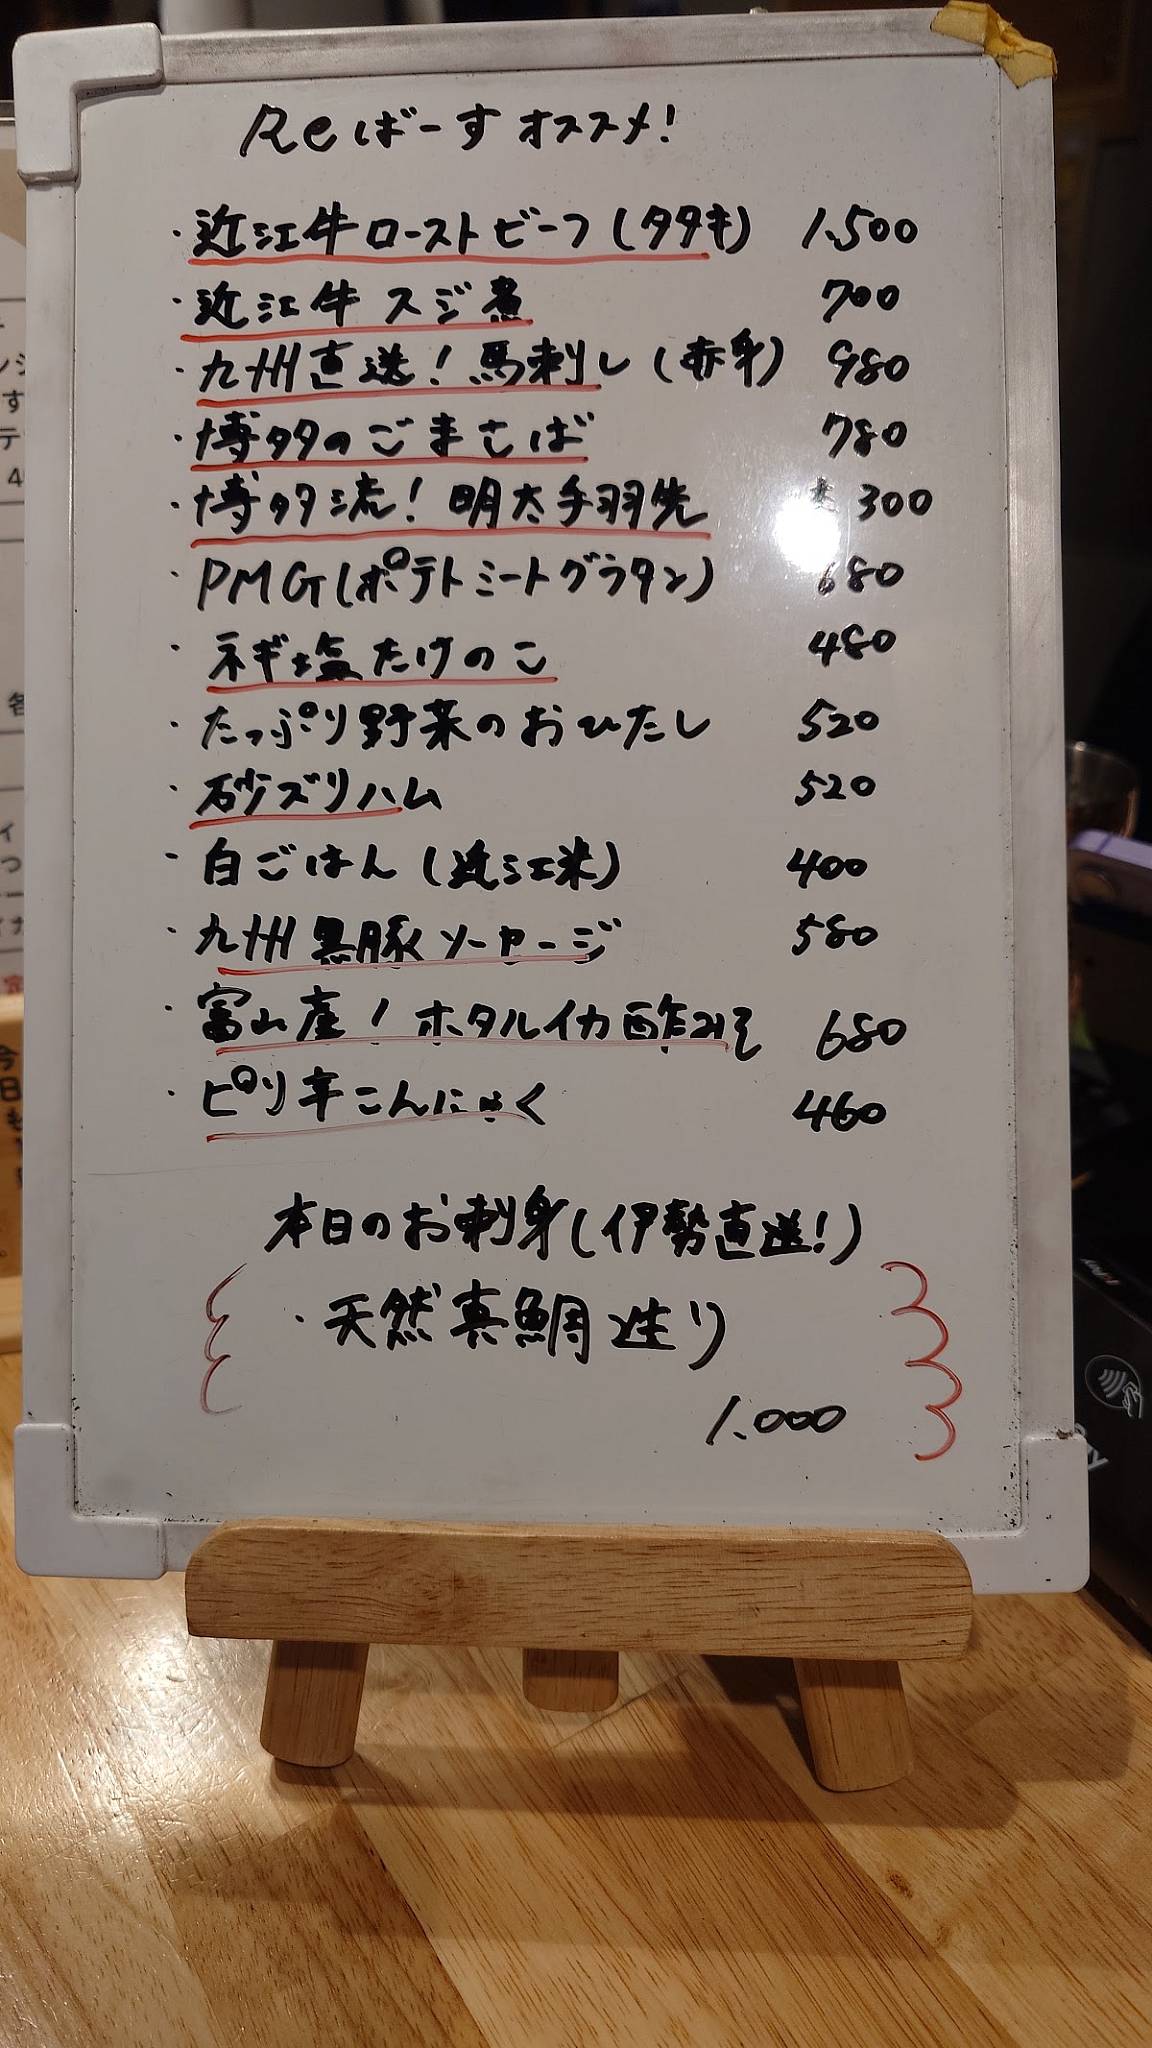 Reばーす オススメ!
・近江牛ローストビーフ(タタキ) 1,500
・近江牛 スジ煮 700
・九州直送!馬刺し(赤身) 980
・博多のごまさば 780
・博多流!明太手羽先 300
・PMG(ポテトミートグラタン) 680
・ネギ塩たけのこ 480
・たっぷり野菜のおひたし 520
・砂ズリハム 520
・白ごはん(近江米) 400
・九州黒豚ソーセージ 580
・富山産!ホタルイカ酢みそ 680
・ピリ辛こんにゃく 460
本日のお刺身(伊勢直送!)
・天然真鯛造り
1,000